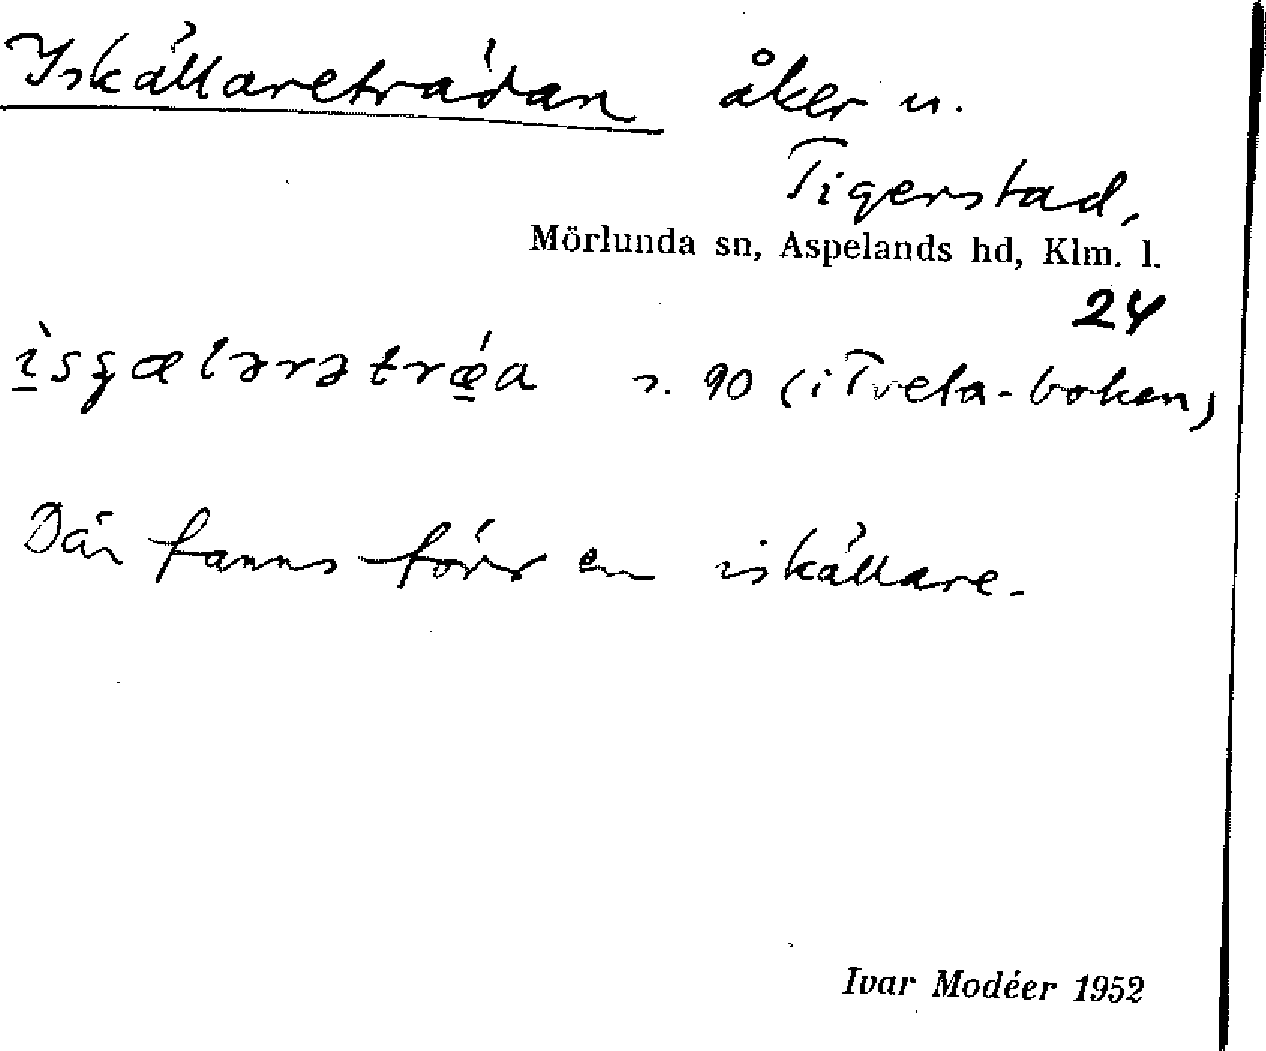 Iskällareträdan åker u.
Tigerstad,
Mörlunda sn, Aspelands hd, Klm. l.
24
s. 90 (i Tveta-boken)
Där fanns förr en iskällare.
Ivar Modéer 1952